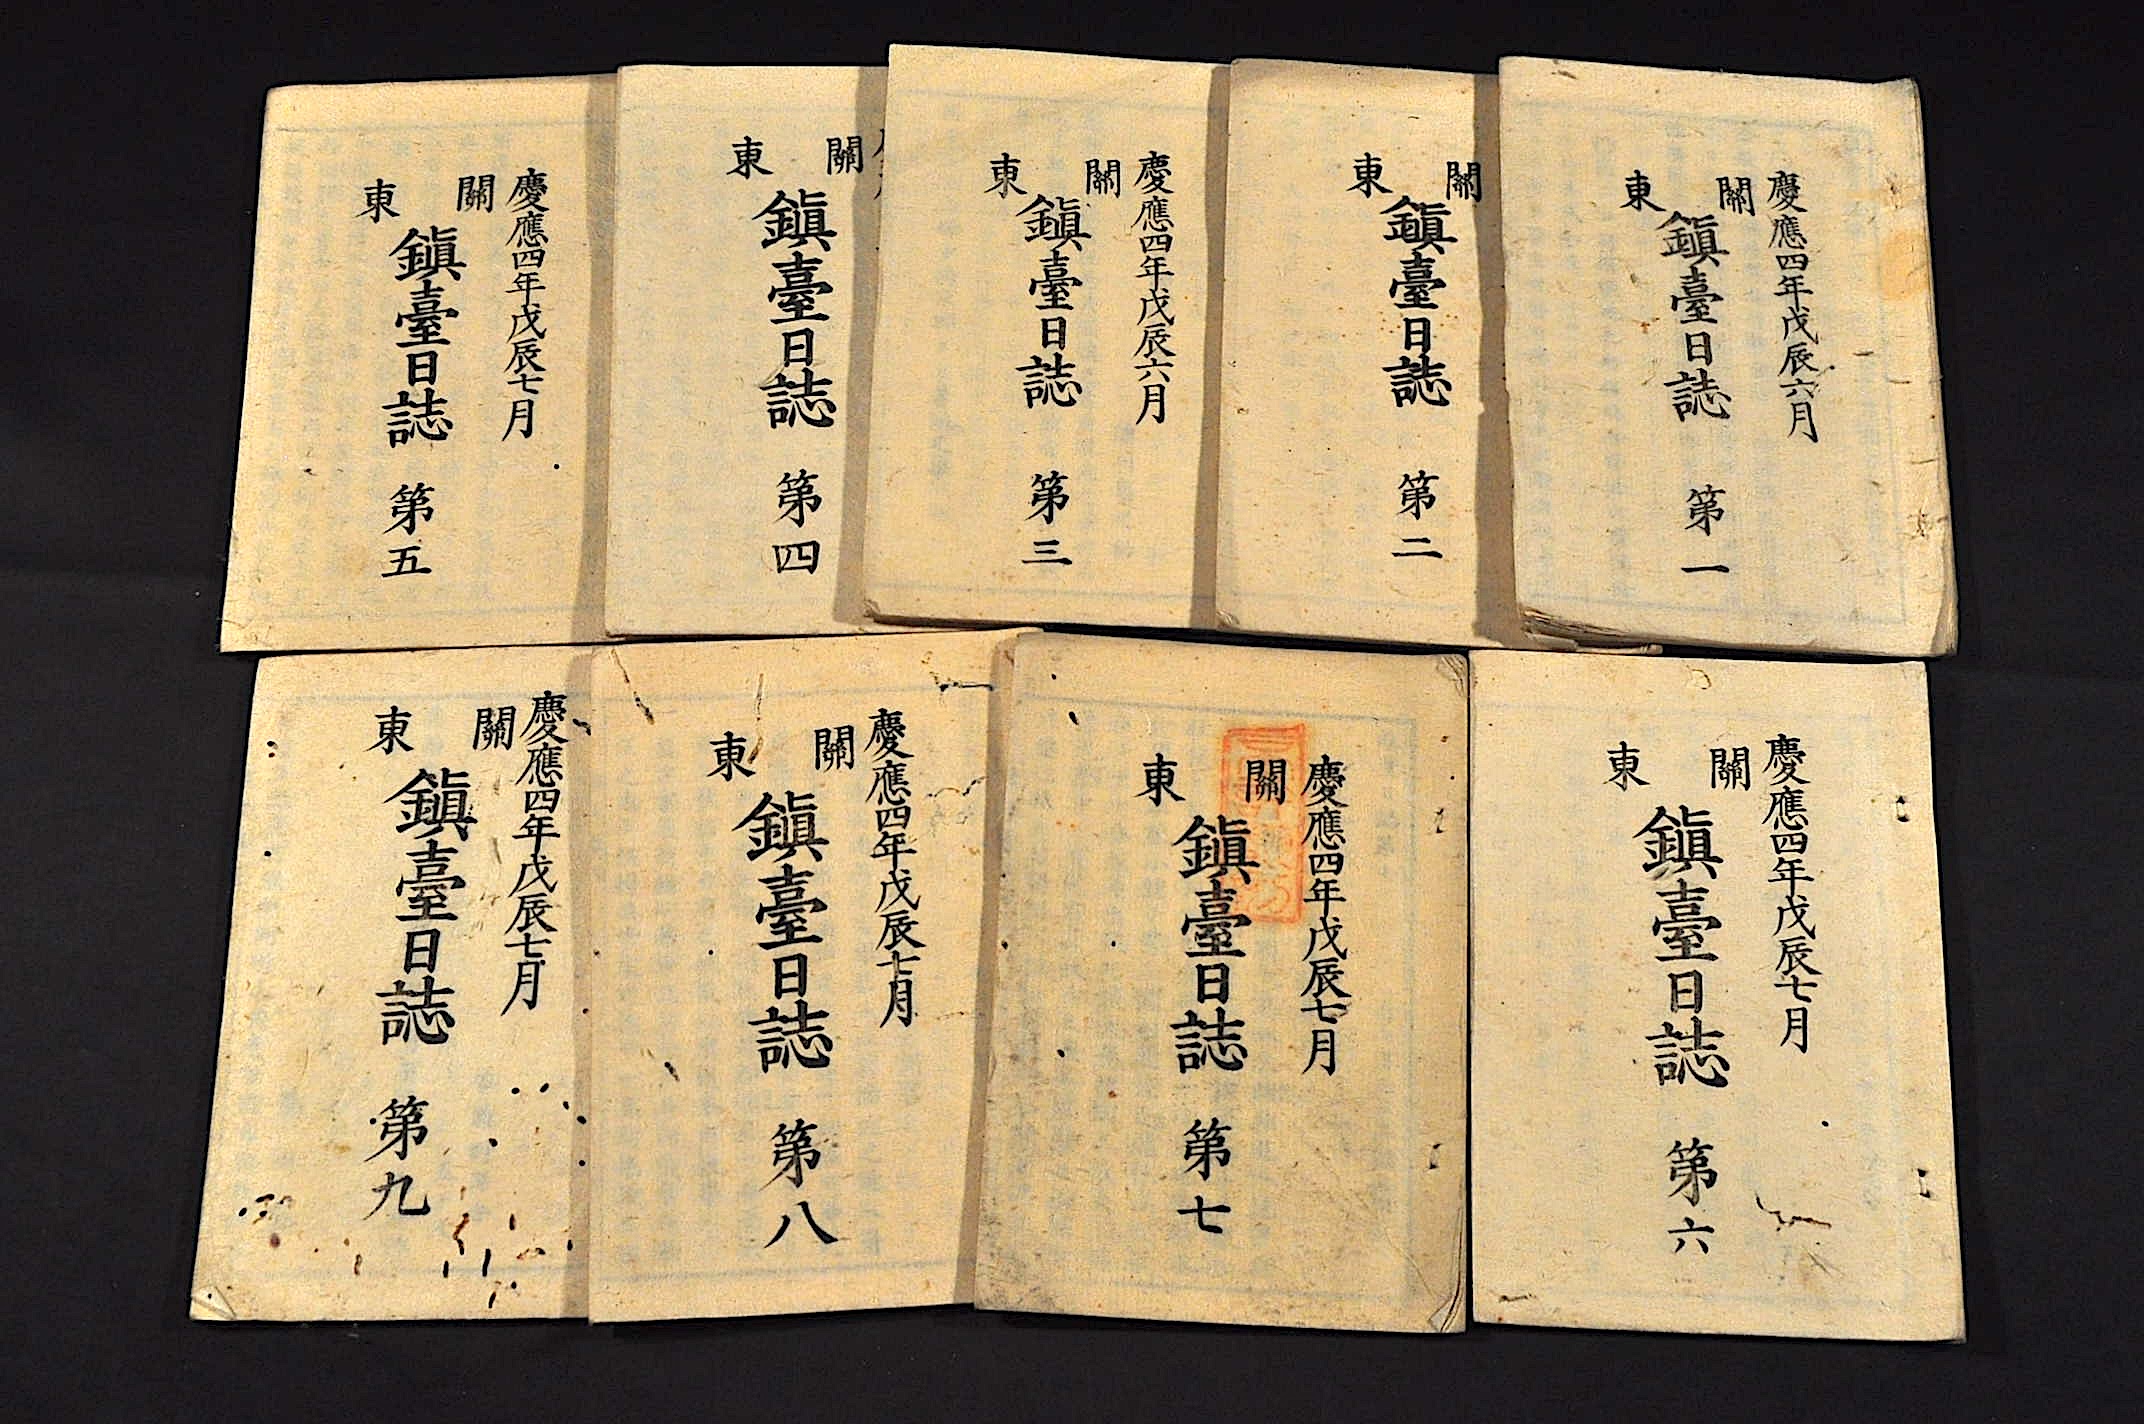 慶應四年戊辰六月
關東
鎭臺日誌 第一
關東
鎭臺日誌 第二
慶應四年戊辰六月
關東
鎭臺日誌 第三
關東
鎭臺日誌 第四
慶應四年戊辰七月
關東
鎭臺日誌 第五
慶應四年戊辰七月
關東
鎭臺日誌 第六
慶應四年戊辰七月
關東
鎭臺日誌 第七
慶應四年戊辰七月
關東
鎭臺日誌 第八
慶應四年戊辰七月
關東
鎭臺日誌 第九